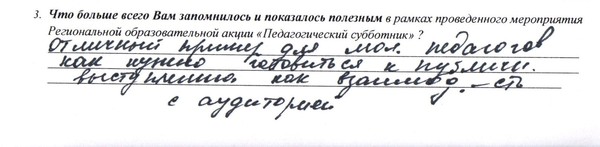 3. Что больше всего Вам запомнилось и показалось полезным в рамках проведенного мероприятия
Региональной образовательной акции «Педагогический субботник» ?
Отличный пример для мол. педагогов
как нужно готовиться к публичн.
выступлению, как взаимод.-сть
с аудиторией